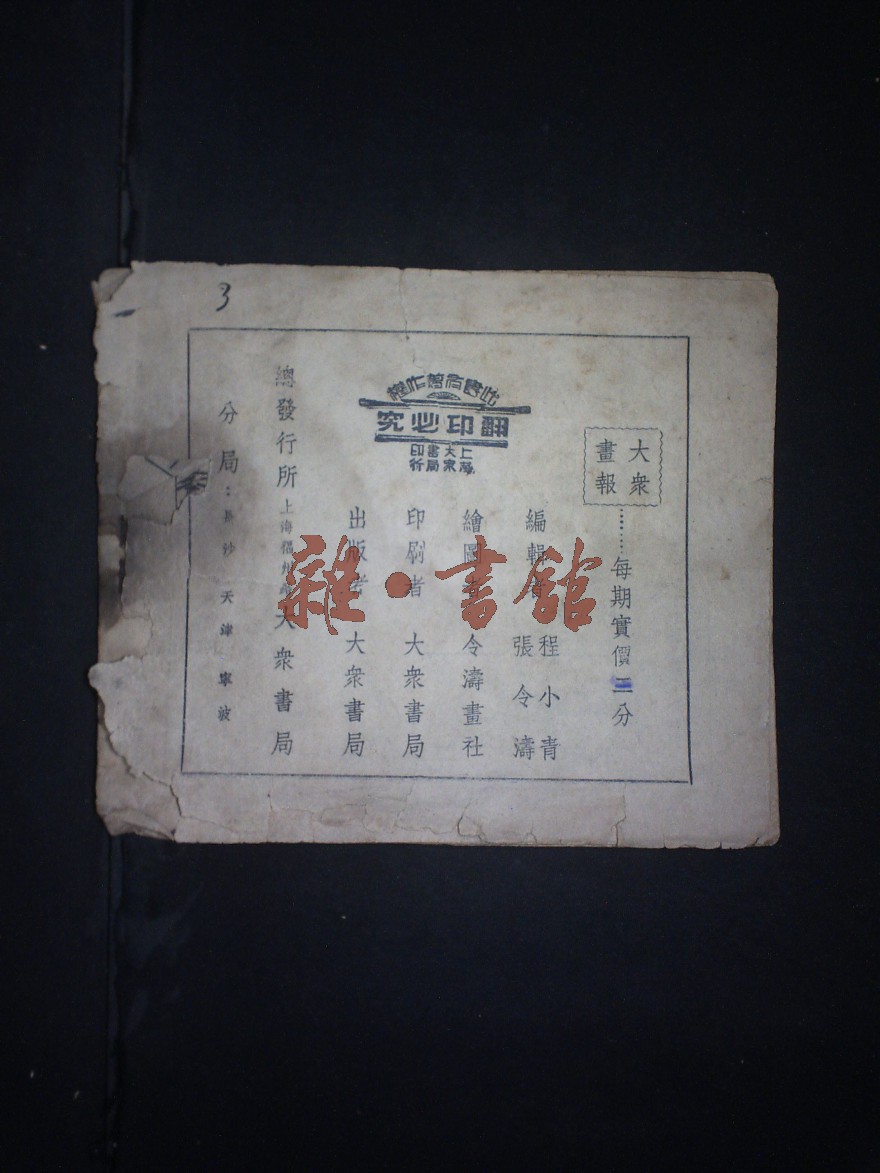 3
大衆
畫報
……每期實價二分
編輯者 程小青
張令濤
繪圖者 令濤畫社
印刷者 大衆書局
出版者 大衆書局
此書有著作權
翻印必究
上海
大衆
書局
印行
總發行所 上海福州路 大衆書局
分局：長沙 天津 寧波
雜·書館